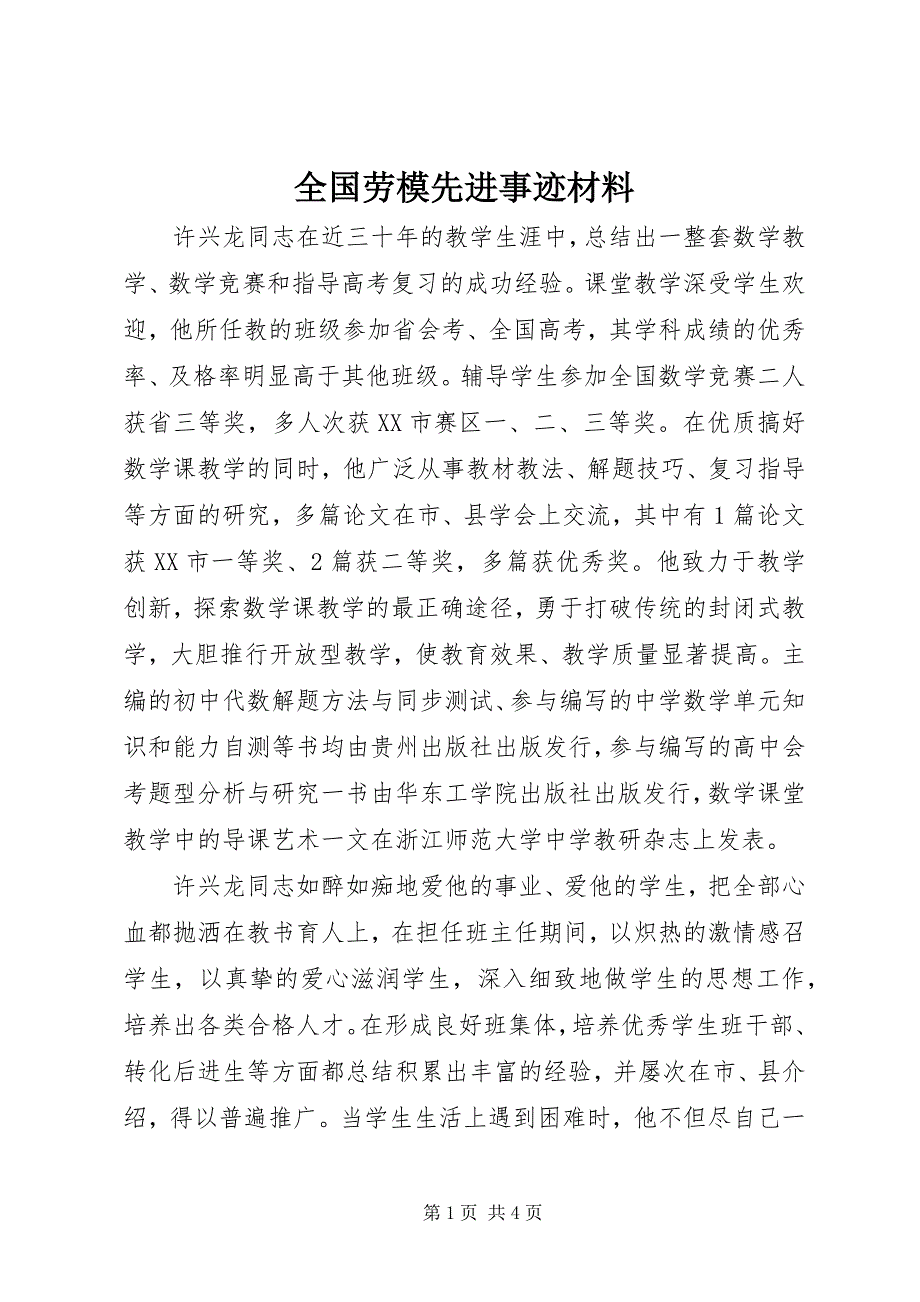 全国劳模先进事迹材料
许兴龙同志在近三十年的教学生涯中，总结出一整套数学教
学、数学竞赛和指导高考复习的成功经验。课堂教学深受学生欢
迎，他所任教的班级参加省会考、全国高考，其学科成绩的优秀
率、及格率明显高于其他班级。辅导学生参加全国数学竞赛二人
获省三等奖，多人次获 XX 市赛区一、二、三等奖。在优质搞好
数学课教学的同时，他广泛从事教材教法、解题技巧、复习指导
等方面的研究，多篇论文在市、县学会上交流，其中有 1 篇论文
获 XX 市一等奖、2 篇获二等奖，多篇获优秀奖。他致力于教学
创新，探索数学课教学的最正确途径，勇于打破传统的封闭式教
学，大胆推行开放型教学，使教育效果、教学质量显著提高。主
编的初中代数解题方法与同步测试、参与编写的中学数学单元知
识和能力自测等书均由贵州出版社出版发行，参与编写的高中会
考题型分析与研究一书由华东工学院出版社出版发行，数学课堂
教学中的导课艺术一文在浙江师范大学中学教研杂志上发表。
许兴龙同志如醉如痴地爱他的事业、爱他的学生，把全部心
血都抛洒在教书育人上，在担任班主任期间，以炽热的激情感召
学生，以真挚的爱心滋润学生，深入细致地做学生的思想工作，
培养出各类合格人才。在形成良好班集体，培养优秀学生班干部、
转化后进生等方面都总结积累出丰富的经验，并屡次在市、县介
绍，得以普遍推广。当学生生活上遇到困难时，他不但尽自己一
第 1 页 共 4 页